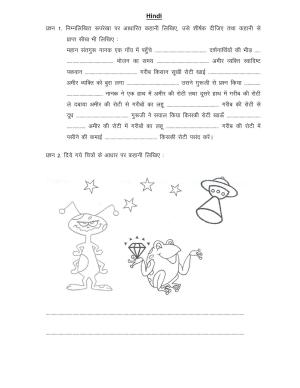 Hindi
प्रश्न 1. निम्नलिखित रूपरेखा पर आधारित कहानी लिखिए, उसे शीर्षक दीजिए तथा कहानी से
प्राप्त सीख भी लिखिए :
महान संतगुरू नानक एक गाँव में पहुँचे .................... दर्शनार्थियों की भीड़ ....
.................... भोजन का समय .................... अमीर व्यक्ति स्वादिष्ट
पकवान .................... गरीब किसान सूखी रोटी खाई ....................
अमीर व्यक्ति को बुरा लगा .................... उसने गुरूजी से प्रश्न किया ..........
.......... नानक ने एक हाथ में अमीर की रोटी तथा दूसरे हाथ में गरीब की रोटी
ले दबाया अमीर की रोटी से गरीबों का लहू .................... गरीब की रोटी से
दूध .................... गुरूजी ने सवाल किया किसकी रोटी खाऊँ ..............
.......... अमीर की रोटी में गरीबों का लहू .................... गरीब की रोटी में
पसीने की कमाई .................... किसकी रोटी पसंद करें।
प्रश्न 2. दिये गये चित्रों के आधार पर कहानी लिखिए :